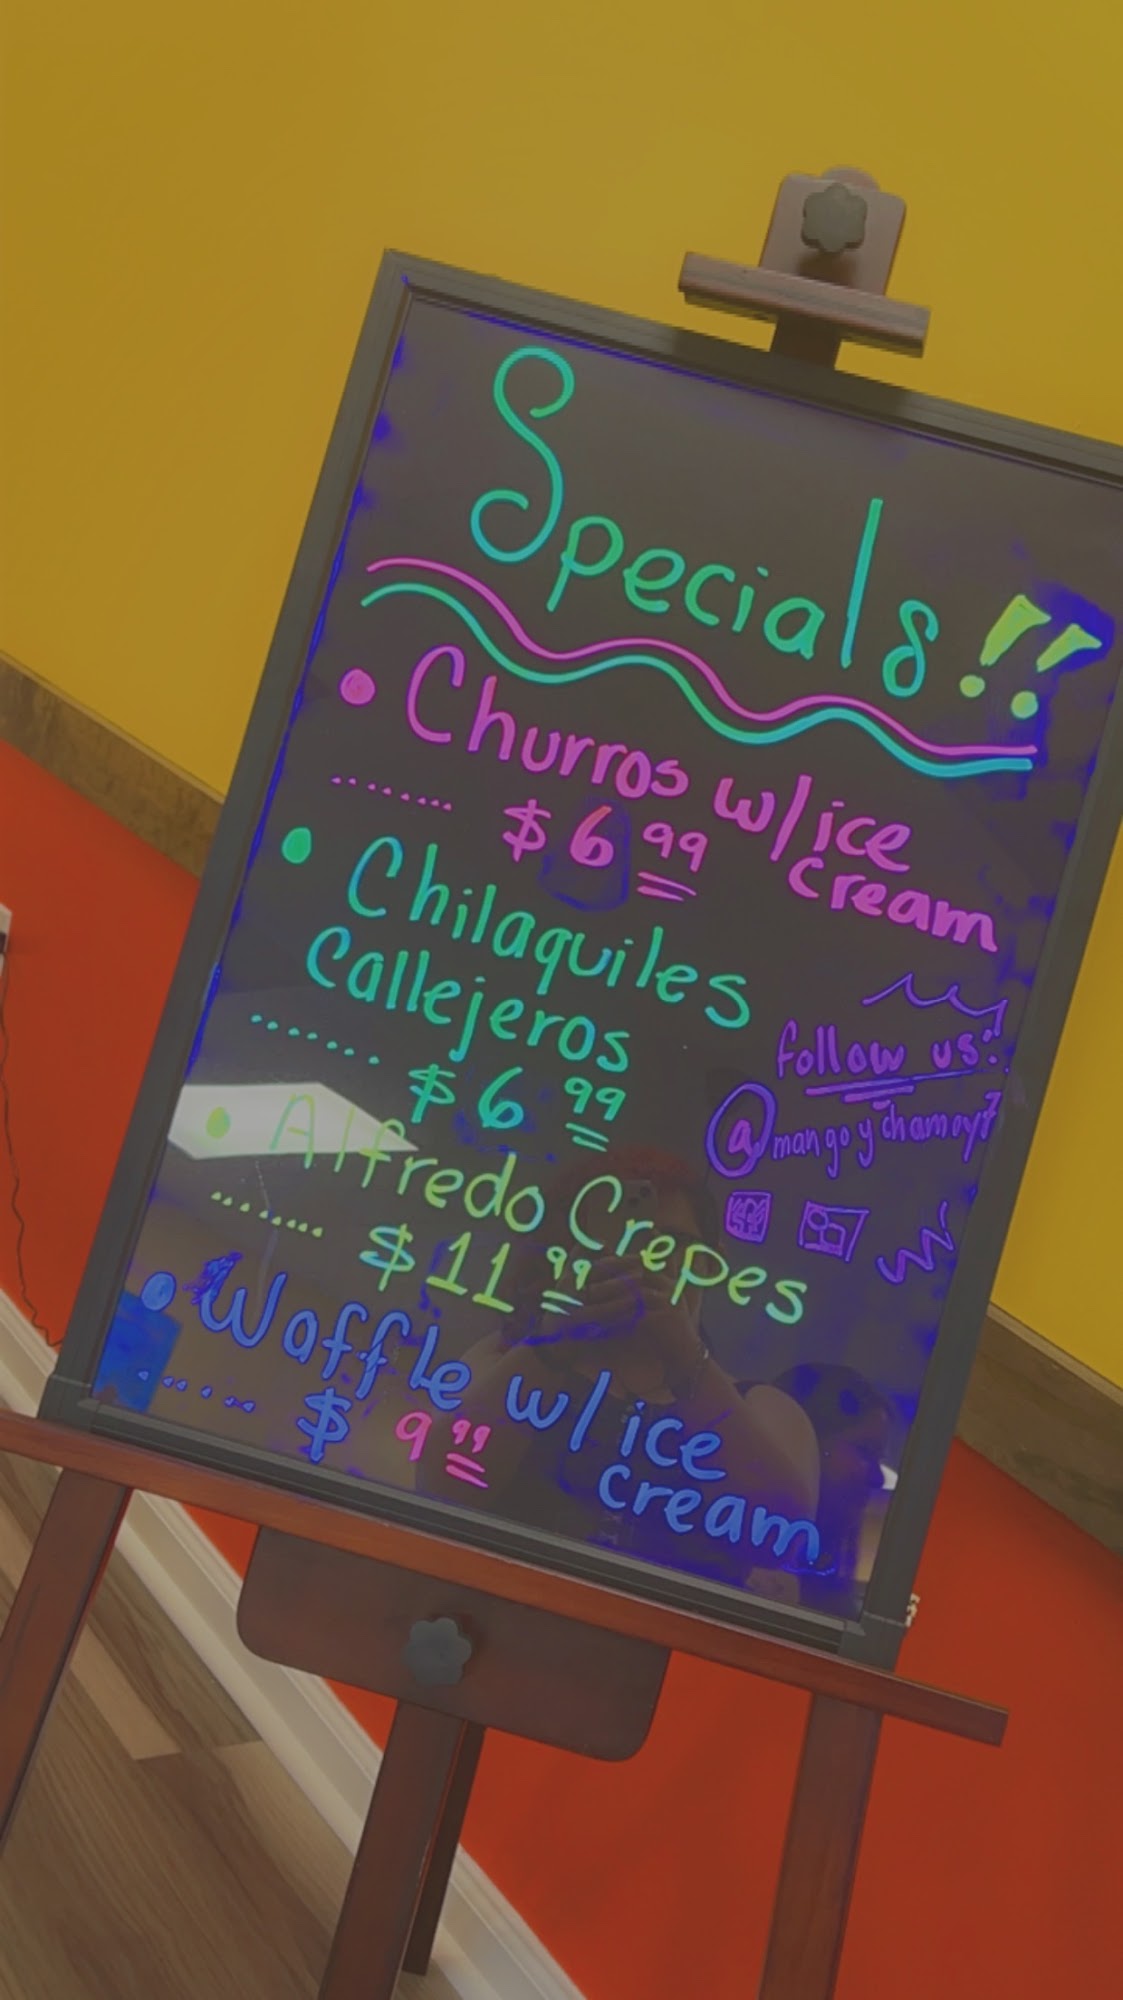 Specials!!
• Churros w/ice
cream
........ $6.99
• Chilaquiles
Callejeros
....... $6.99
follow us!!
• Alfredo Crepes
........ $11.99
• Waffle w/ice
cream
....... $9.99